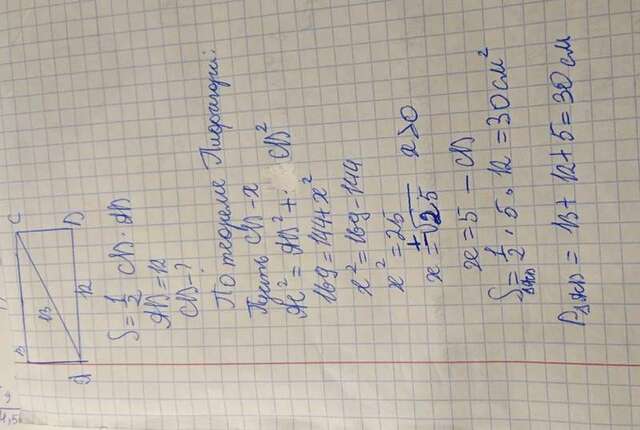 B C
13
A 12 D
S = 1/2 CD · AD
AD = 12
CD - ?
По теореме Пифагора:
Пусть CD - x
AC² = AD² + CD²
169 = 144 + x²
x² = 169 - 144
x² = 25
x = ±√25 x>0
x = 5 — CD
S△ACD = 1/2 · 5 · 12 = 30 см²
P△ACD = 13 + 12 + 5 = 30 см